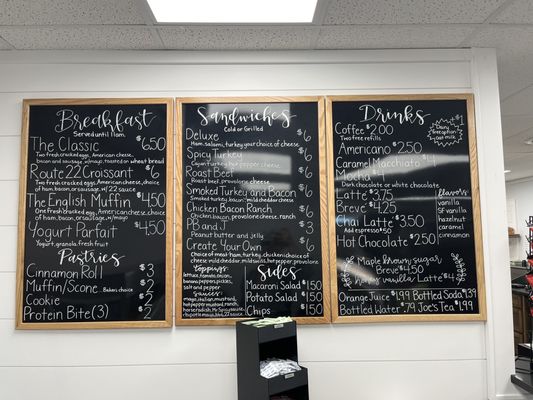 Breakfast
Served until 11am
The Classic $6.50
Two fresh cracked eggs, American cheese,
choice of ham, bacon or sausage, toasted on wheat bread
Route 22 Croissant $6
Two fresh cracked eggs, American cheese, choice
of ham, bacon, or sausage, w/ 22 sauce
The English Muffin $4.50
One fresh cracked egg, American cheese, choice
of ham, bacon, or sausage, w/ 22 sauce
Yogurt Parfait $4.50
Yogurt, granola, fresh fruit
Pastries
Cinnamon Roll $3
Muffin/Scone Bakers choice $2
Cookie $2
Protein Bite (3) $2
Sandwiches
Cold or Grilled
Deluxe $6
Ham, salami, turkey, your choice of cheese
Spicy Turkey $6
Cajun turkey, pepper cheese
Roast Beef $6
Roast beef, provolone cheese
Smoked Turkey and Bacon $6
Smoked turkey, bacon, mild cheddar cheese
Chicken Bacon Ranch $6
Chicken, bacon, provolone cheese, ranch
PB and J $3
Peanut butter and Jelly
Create Your Own $6
Choice of meat: ham, turkey, chicken, choice of
cheese: mild cheddar, mild swiss, hot pepper, provolone
Toppings
lettuce, tomato, onion,
banana pepper, pickles,
salt and pepper
Sauces
mayo, italian, mustard,
hot pepper mustard, ranch,
horseradish, Mr Spicy sauce,
chipotle mayo, 22 sauce
Sides
Macaroni Salad $1.50
Potato Salad $1.50
Chips $1.50
Drinks
Coffee $2.00
Two free refills
Americano $2.50
Caramel Macchiato $4
Mocha $4
Dark chocolate or white chocolate
Latte $3.75
Breve $4.25
Chai Latte $3.50
Add espresso $.50
Hot Chocolate $2.50
+ $1
Dairy-free option
oat milk
Flavors
vanilla
SF vanilla
hazelnut
caramel
cinnamon
Maple brown sugar
Breve $4.50
honey vanilla Latte $4
Orange Juice $1.99 Bottled Soda $.39
Bottled Water $.79 Joe's Tea $1.99